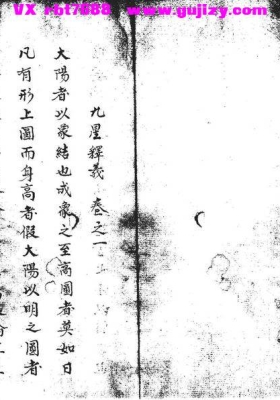 VX rbt7688 www.gujizy.com
九星釋義 卷之一
太陽者以象結也成象之至高圓者莫如日
凡有形上圓而身高者假太陽以明之圓者